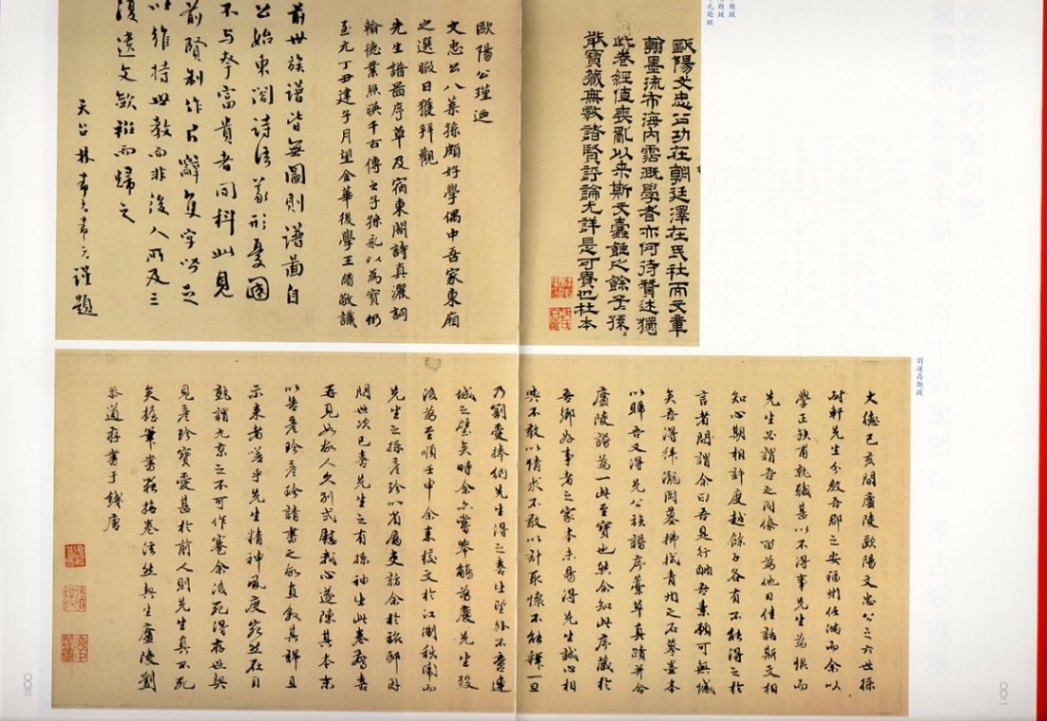 歐陽文忠公功在朝廷澤在民社而文章
翰墨流布海内霑溉學者亦何待贊述獨
此卷經值喪亂以来斯文蠹蝕之餘子孫
能寶藏無斁諸賢評論尤詳是可寶也杜本
歐陽公瑾迺
文忠公八葉孫頗好學偶中吾家東廂
之選暇日獲拜觀
先生譜圖序草及宿東閣詩真灑詞
翰德業照映千古傳之子孫永以為寶仍
至元丁丑建午月望金華後學王 敬識
前世族譜皆無圖則譜圖自
公始東閣詩語義形憂國
不与夸富貴者同科此見
前賢制作
以維持世教而非後人所及三
復遺文斂袵而歸之
天台林希元謹題
大德己亥間廬陵歐陽文忠公之六世孫
耐軒先生分教吾郡之安福州任滿而余以
學正缺員執職甚以不得事先生為恨而
先生必謂吾之同僚留為他日佳話斯文相
知心期相許度越餘子各有不能得之於
言者間謂余曰吾見行 吾素 可無憾
矣吾得拜瀧岡墓摩拭青州之石摹墨本
以歸吾又得先公族譜序藁草真蹟并合
廬陵譜為一此至寶也然余知此序藏於
吾鄉好事者之家本未易得先生誠心相
與不敢以情求不敢以計取懷不能釋一旦
乃劉愛捧納先生得之喜生望外不啻連
城之璧矣時余亦嘗舉觴為慶先生歿
後為至順壬申余来校文於江浙秋闈而
先生之孫彥珍以省屬吏訪余於旅邸
問世次已喜先生之有孫袖出此卷
再見如故人久別式慰我心遂陳其本末
以告彥珍彥珍請書之故直敘其詳且
示来者嗟乎先生精神風度宛然在目
孰謂九京之不可作蹇余後死得存世與
見彥珍寶愛甚於前人則先生真不死
矣援筆書 掩卷泫然契生廬陵劉
岳道存書于錢唐
劉遂存題跋